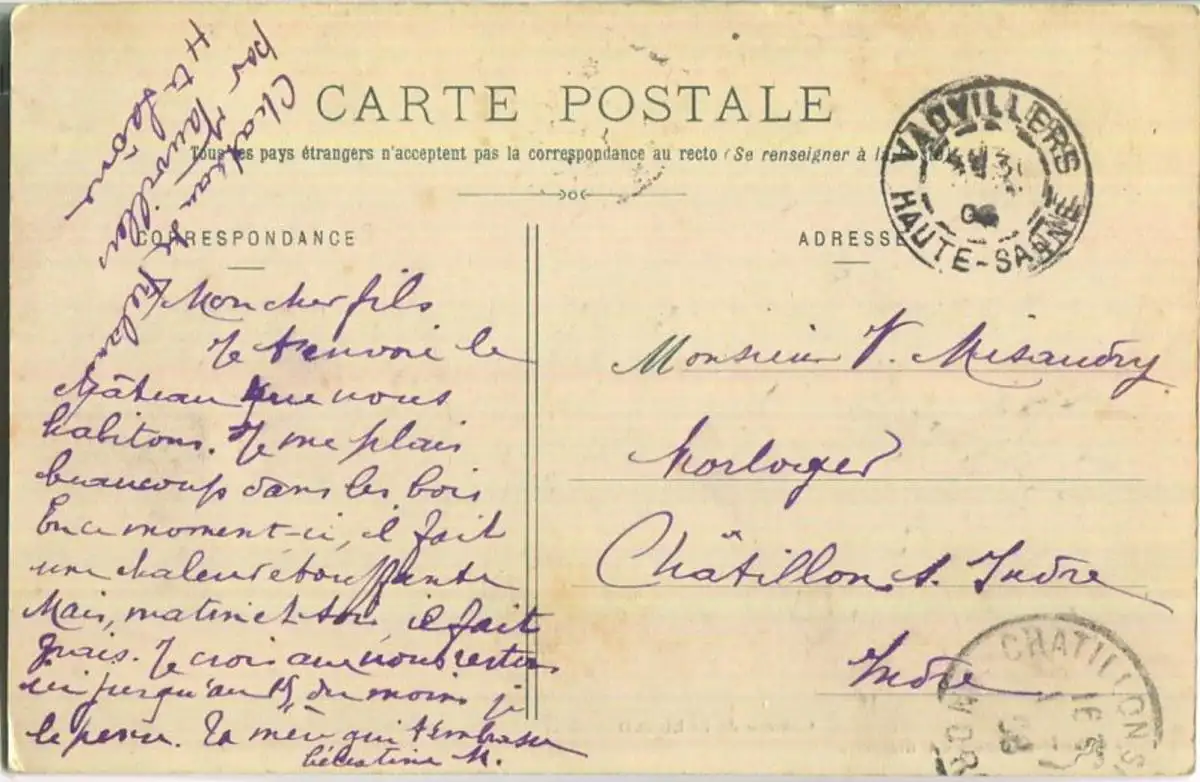 Château de Frelan
par Vauvillers
Hte Saône
CARTE POSTALE
Tous les pays étrangers n'acceptent pas la correspondance au recto (Se renseigner à la
CORRESPONDANCE
Mon cher fils
Je t'envoie le
château que nous
habitons. Je me plais
beaucoup dans les bois
En ce moment-ci, il fait
une chaleur étouffante
Mais, matin et soir, il fait
frais. Je crois que nous restons
ici jusqu'au 15 du moins je
le pense. Ta mère qui t'embrasse
Célestine M.
ADRESSE
VAUVILLERS
HAUTE-SAÔNE
Monsieur V. Misandry
Horloger
Châtillon s. Indre
Indre
CHATILLON S
16